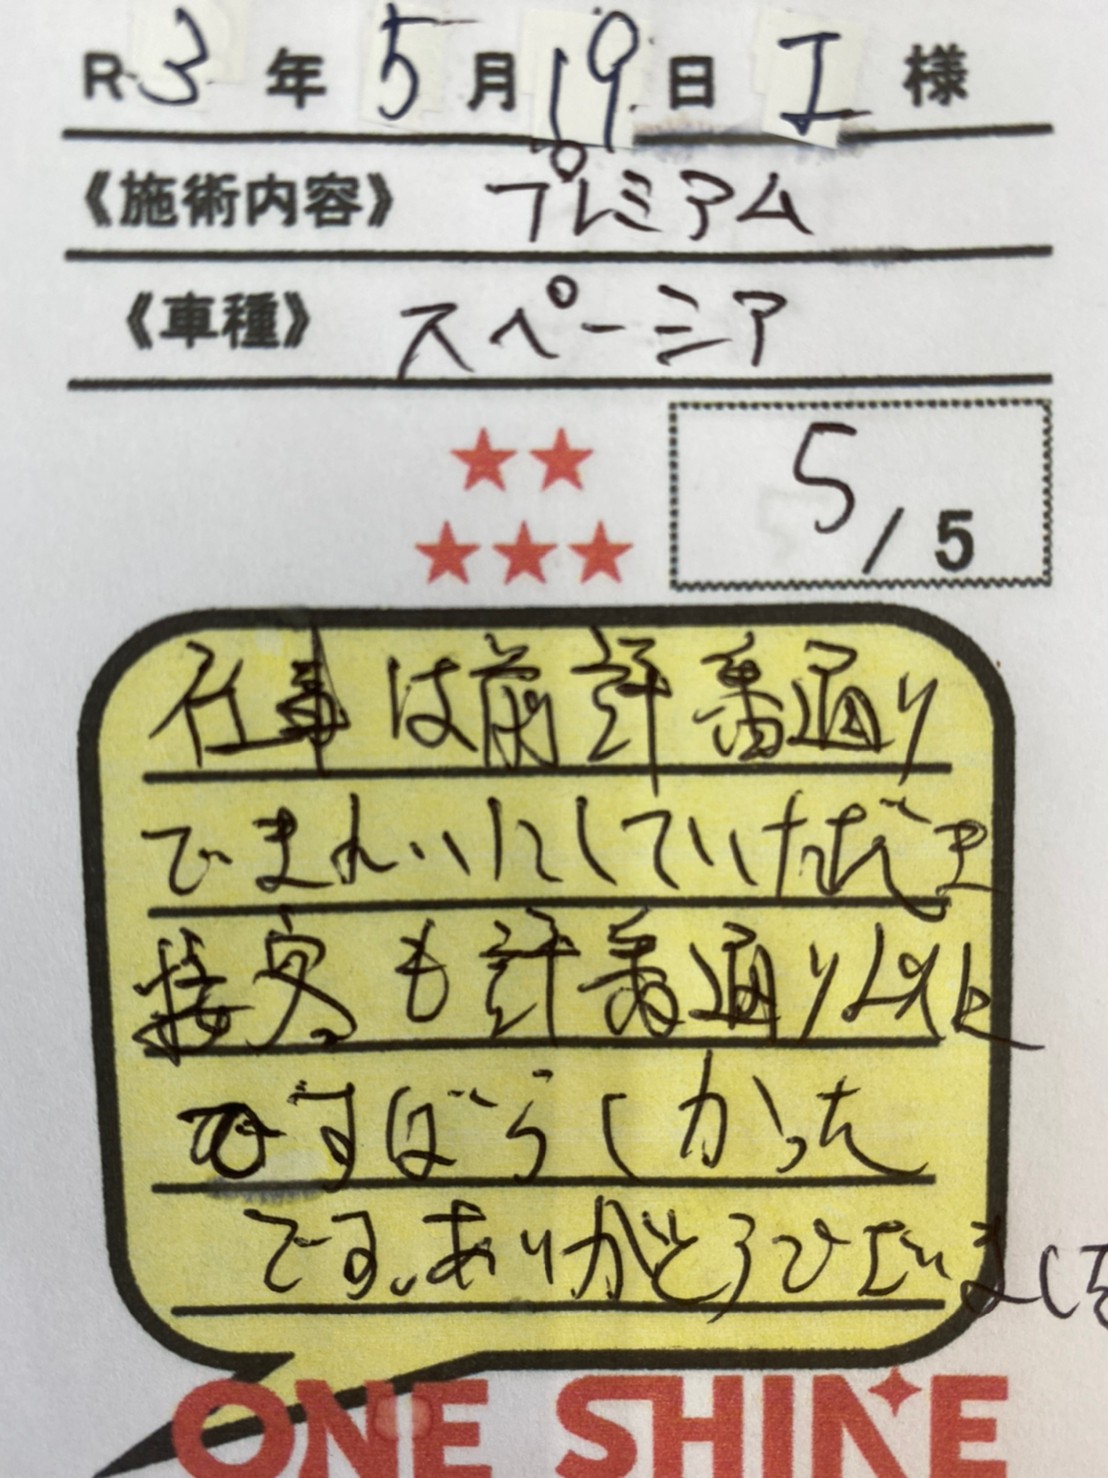 R3年5月19日 I 様
《施術内容》 プレミアム
《車種》 スペーシア
5/5
仕事は前評番通り
できれいにしていただき
接客も評番通り以上
ですばらしかった
です。ありがとうございました
ONE SHINE